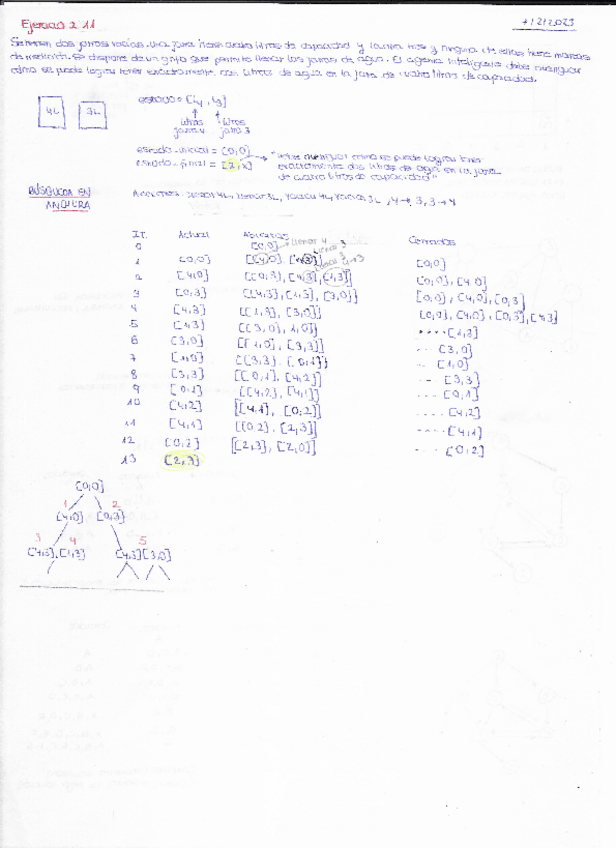 Ejercicio 2.11
7/2/2023
Se tienen dos jarras vacías. Una jarra tiene cuatro litros de capacidad y la otra tres y ninguna de ellas tiene marcas
de medición. Se dispone de un grifo que permite llenar las jarras de agua. El agente inteligente debe averiguar
cómo se puede lograr tener exactamente dos litros de agua en la jarra de cuatro litros de capacidad.
4L 3L
estado = [L4, L3]
litros jarra 4
litros jarra 3
estado-inicial = [0,0]
estado-final = [2,x] → "
exactamente dos litros de agua en la jarra
de cuatro litros de capacidad"
BÚSQUEDA EN ANCHURA
Acciones: llenar 4L, llenar 3L, vaciar 4L, vaciar 3L, 4→3, 3→4
IT. Actual Abiertos Cerrados
0 [0,0] llenar 4 llenar 3
1 [0,0] [[4,0], [0,3]] [0,0]
2 [4,0] [[0,3], [4,3], [1,3]] [0,0], [4,0]
3 [0,3] [[4,3], [1,3], [3,0]] [0,0], [4,0], [0,3]
4 [4,3] [[1,3], [3,0]] [0,0], [4,0], [0,3], [4,3]
5 [1,3] [[3,0], 1,0]] .... [1,3]
6 [3,0] [[1,0], [3,3]] ... [3,0]
7 [1,0] [[3,3], [0,1]] .. [1,0]
8 [3,3] [[0,1], [4,2]] ... [3,3]
9 [0,1] [[4,2], [4,1]] ... [0,1]
10 [4,2] [[4,1], [0,2]] .... [4,2]
11 [4,1] [[0,2], [2,3]] .... [4,1]
12 [0,2] [[2,3], [2,0]] ... [0,2]
13 [2,3]
[0,0]
1 2
[4,0] [0,3]
3 4 5
[4,3] [1,3] [4,3] [3,0]